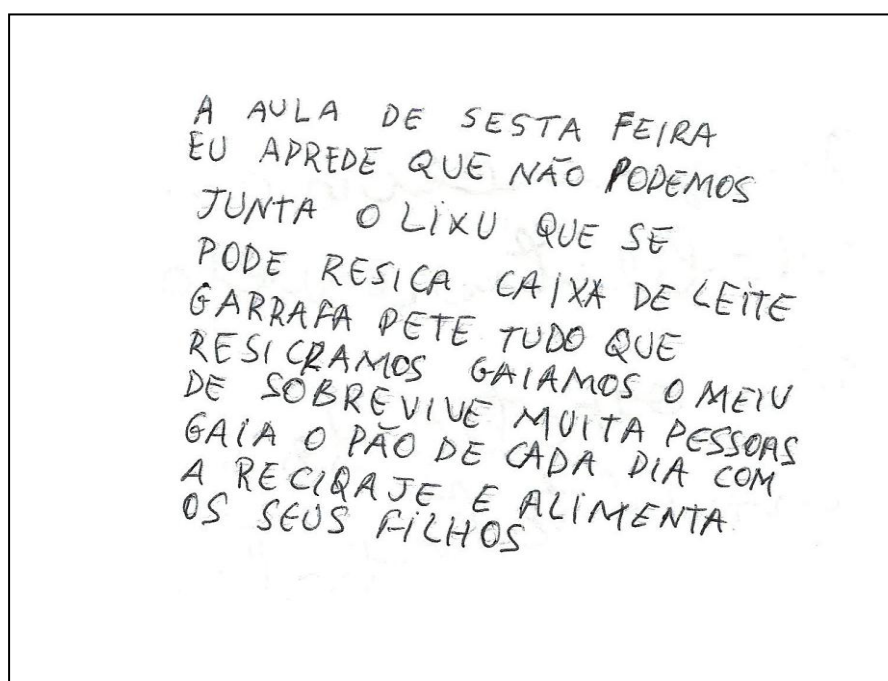 A AULA DE SESTA FEIRA
EU APREDE QUE NÃO PODEMOS
JUNTA O LIXU QUE SE
PODE RESICA CAIXA DE LEITE
GARRAFA PETE TUDO QUE
RESICRAMOS GAIAMOS O MEIU
DE SOBREVIVE MUITA PESSOAS
GAIA O PÃO DE CADA DIA COM
A RECIQAJE E ALIMENTA
OS SEUS FILHOS